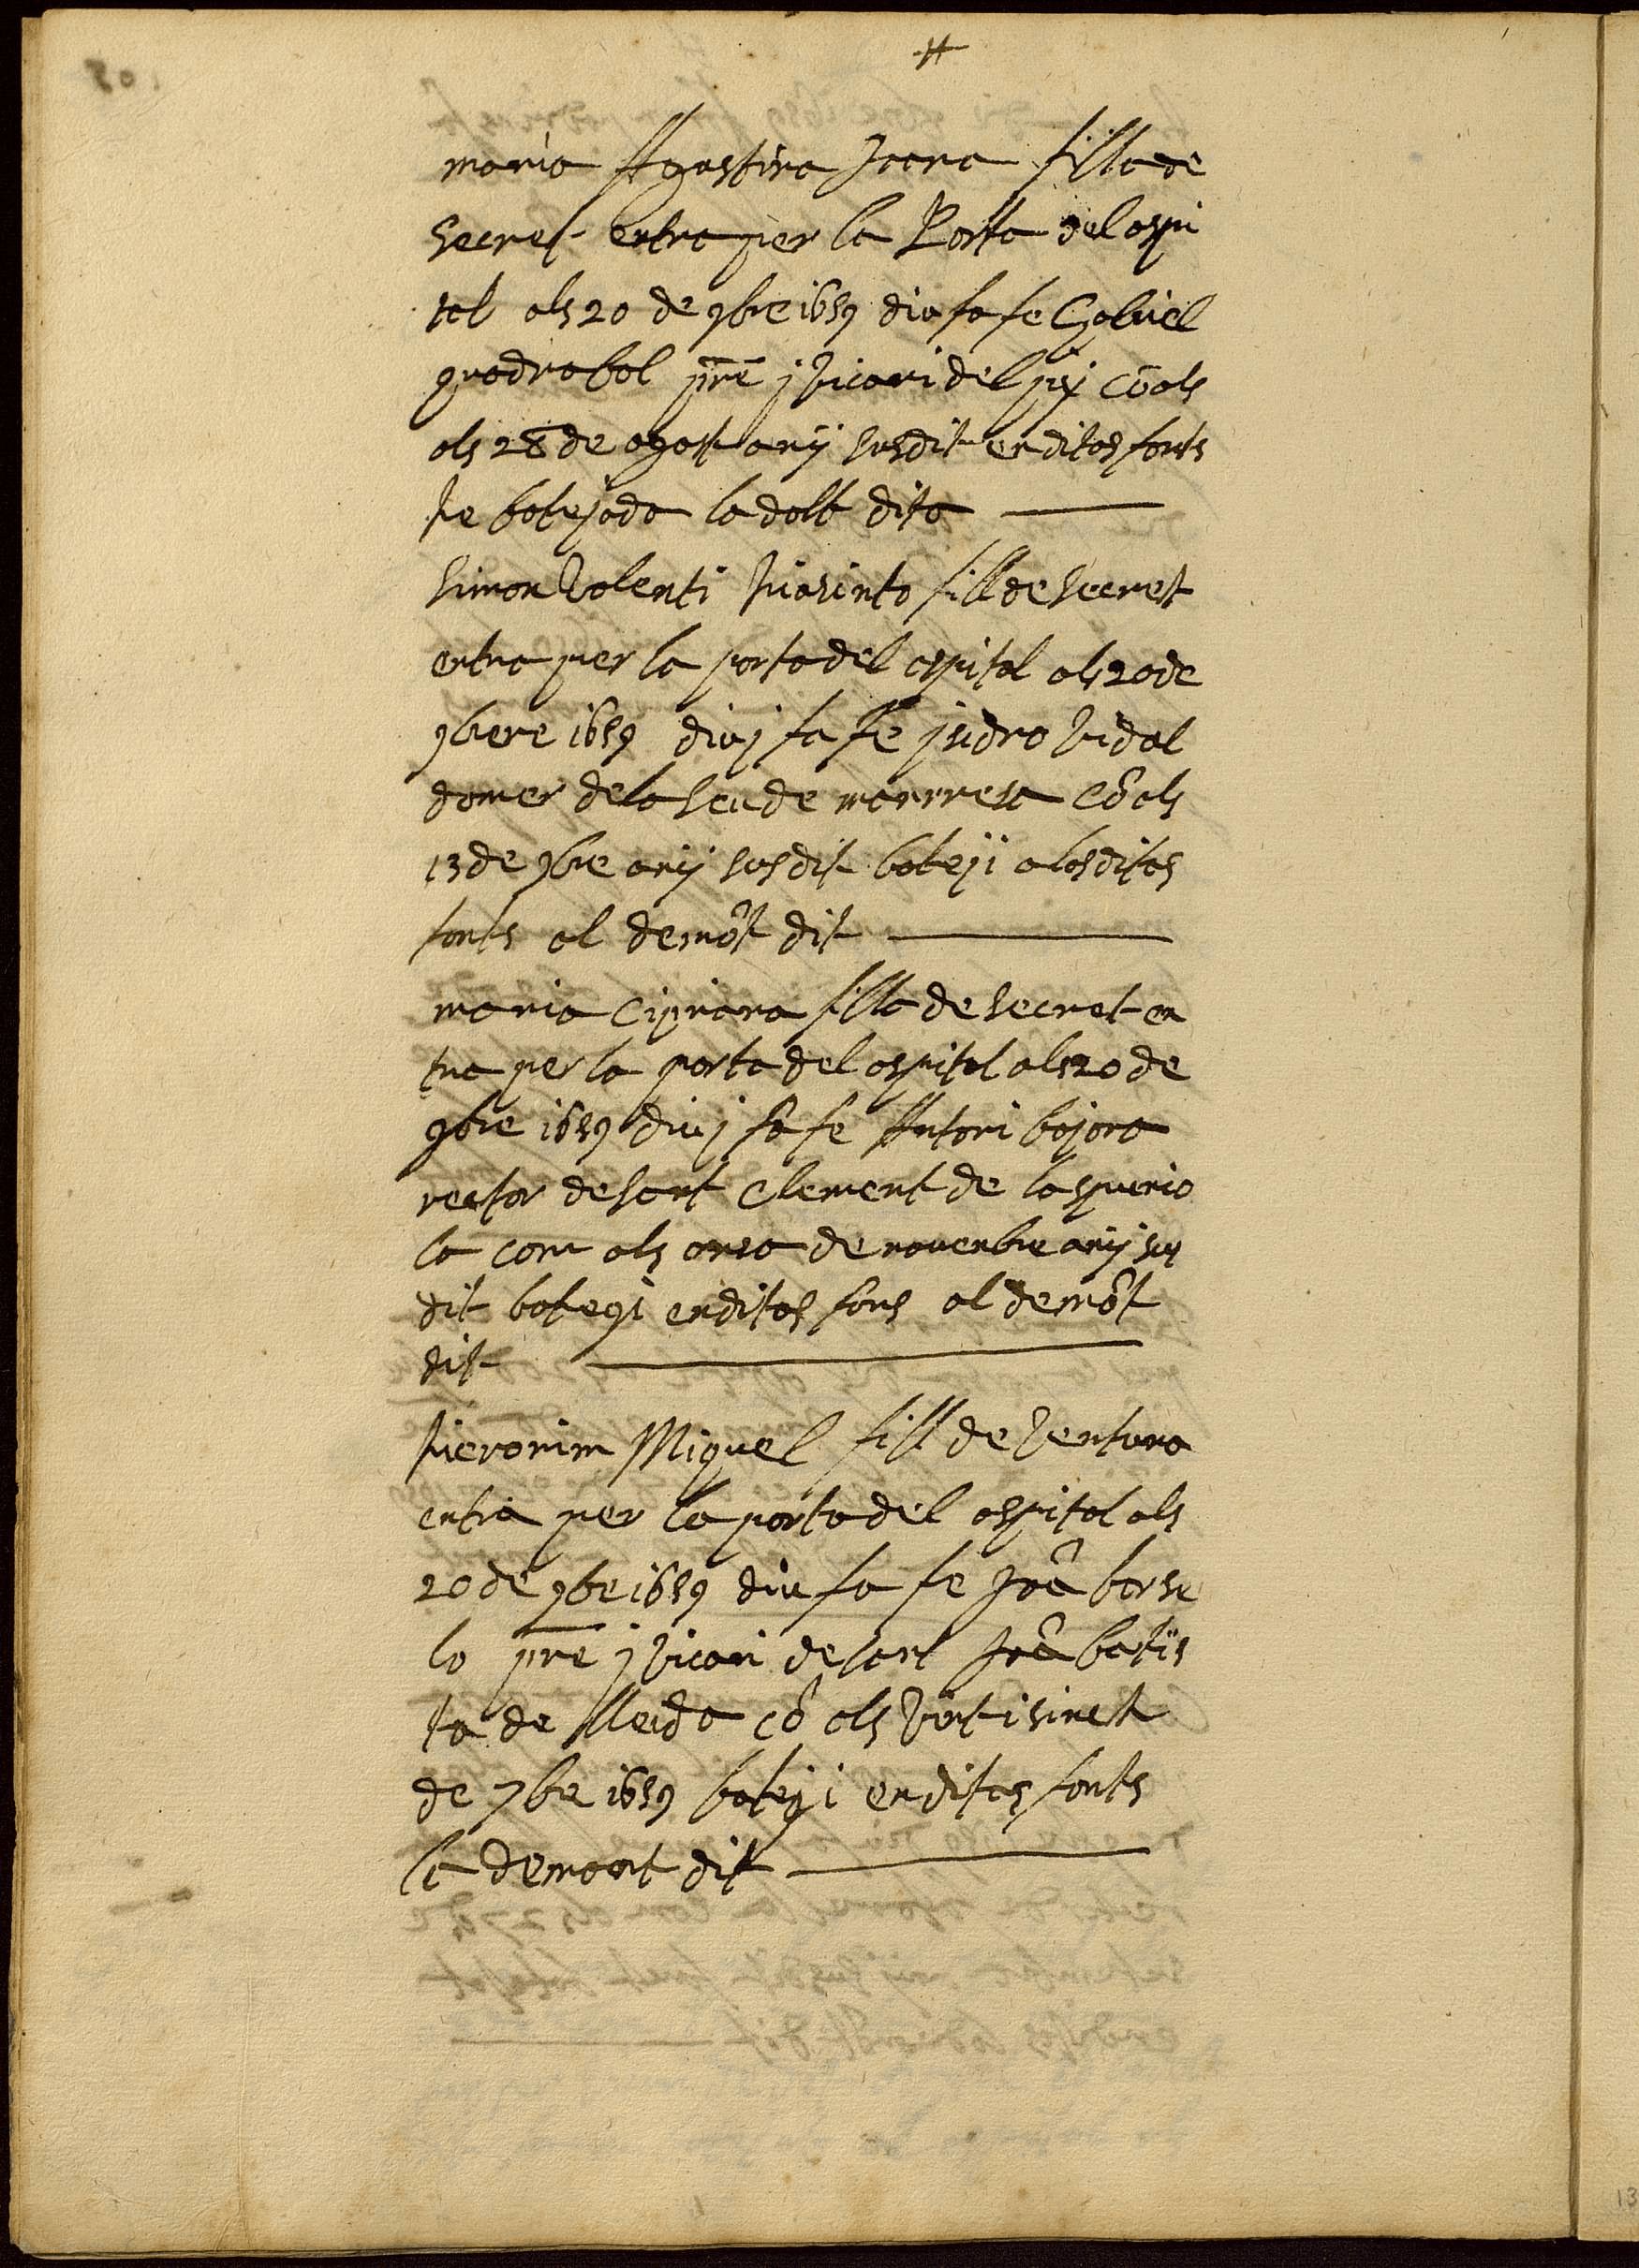 maria Agostina Joana filla de
secret entra per la Porta del ospi
tal als 20 de 9bre 1659 diu fa fe Gabriel
quadrabal pre y vicari del pij cō als
als 28 de agost anÿ susdit en ditas fonts
fe batejada la dalt dita
Simon Valenti hiasinto fill de secret
entra per la porta del ospital als 20 de
9bere 1659 diuj fa fe jsidro Vidal
domer de la Seu de manrresa Cō als
13 de 9bre anÿ susdit bateji a las ditas
fonts al demōt dit
maria Cipriana filla de secret en
tra per la porta del ospital als 20 de
9bre 1659 diuj fa fe Antoni bajona
rector de sant Clement de la spunio
la com als onsa de nouenbre anÿ sus
dit bategi en ditas fons al demōt
dit
hieronim Miquel fill de Ventura
entra per la porta del ospital als
20 de 9bre 1659 diu fa fe Joā barse
lo pre y vicari de sant Joā batis
ta de lleida cō als Vint i sinch
de 7bre 1659 bategi en ditas fonts
la demont dit